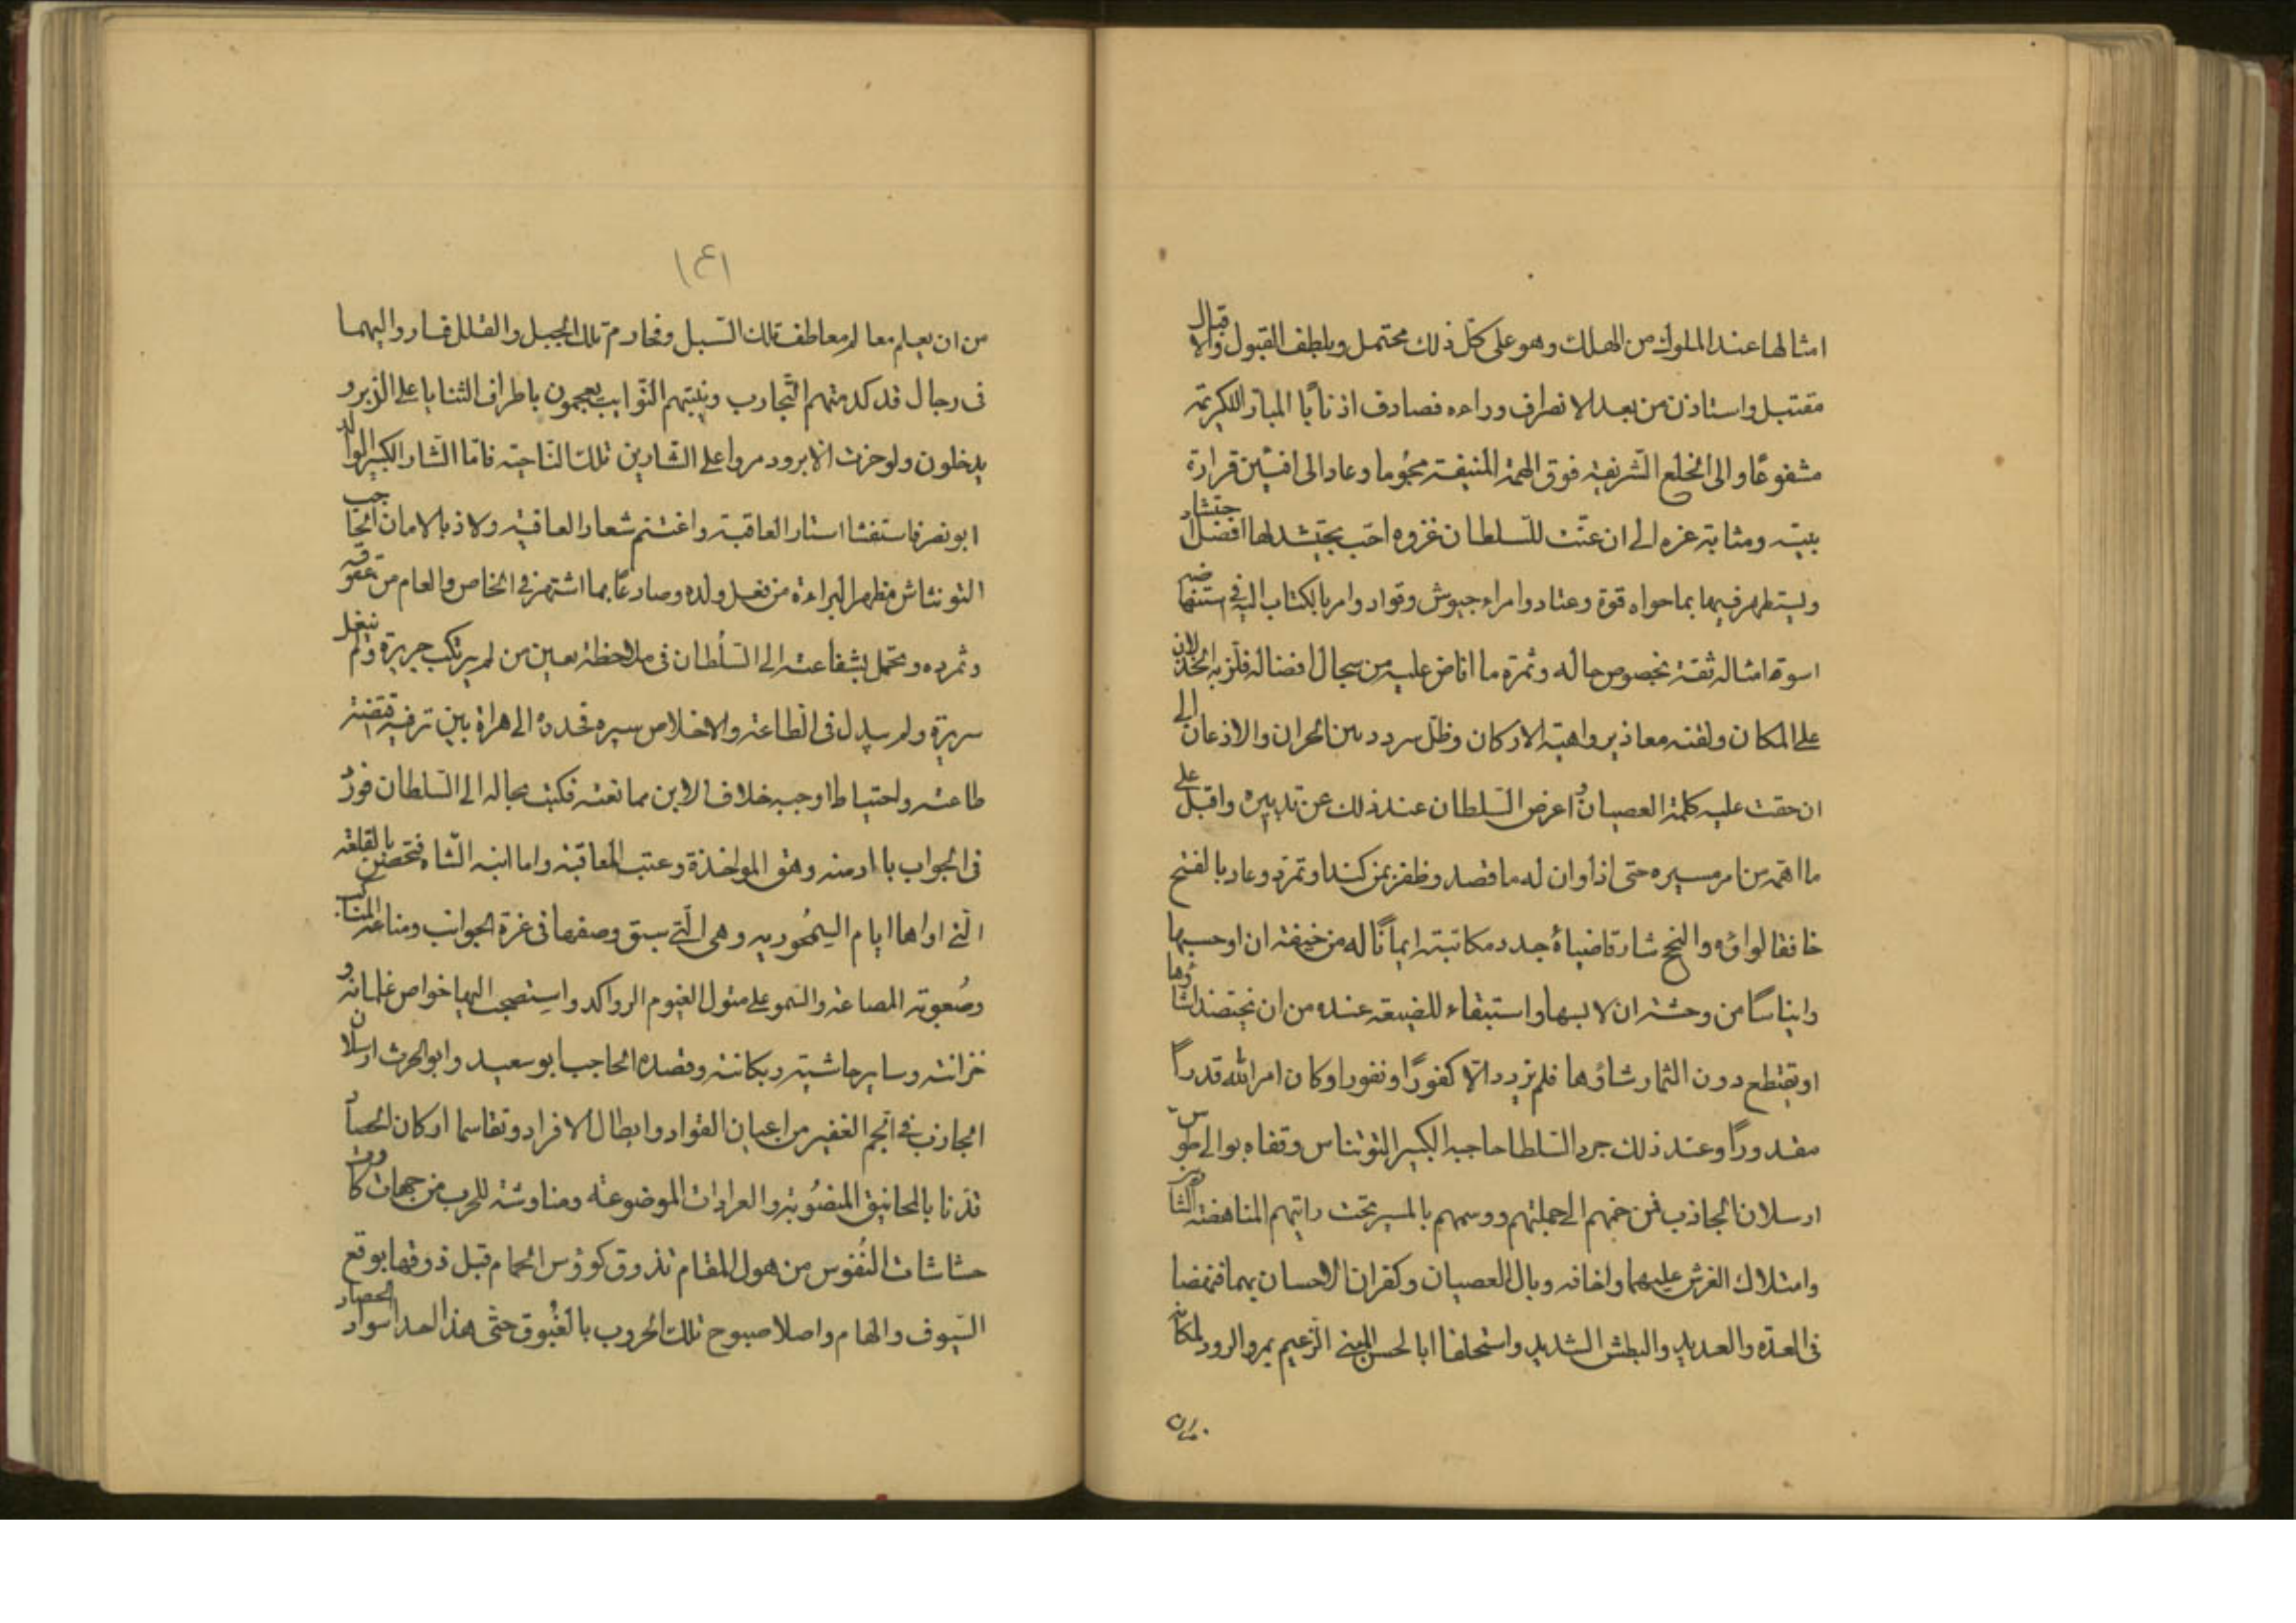 امثالها عند الملوك من الهلك وهو على كل ذلك محتمل وبلطف القبول والاقبال
مقتبل واستاذن من بعد الانصراف وراءه فصادف اذنا با المبار الكريمة
مشفوعًا والى الخلع الشريفة فوق الهمة المنيفة مجموما وعاد الى افشين قرارة
بيته ومثابة عزه الى ان عنّت للسلطان غزوه احب يحتشد لها افضل احتشاد
وليستظهر فيها بما حواه قوة وعتاد وامراء جيوش وقواد وامر بالكتاب اليه فى استنهاضه
اسوة امثاله ثقة بخصوص حاله وثمرة ما افاض عليه من سجال افضاله فلزبه الخذلان
على المكان ولقنه معاذير واهية الاركان وظل يردد بين الحران والاذعان الى
ان حقت عليه كلمة العصيان و اعرض السلطان عند ذلك عن تدبيره واقبل على
ما اهمه من امر مسيره حتى اذا وان له ما قصد وظفر بمن كند او تمرد وعاد بالفتح
خافقا لواؤه والنجح شارقا ضياؤه جدد مكاتبته ايمانًا له من خيفة ان اوجسها
وايناسًا من وحشة ان لابسها واستبقاء للضيعة عنده من ان يختضد اشاؤها
او يقتطع دون الثمار شاؤها فلم يزدد الا كفورًا ونفورا وكان امر الله قدراً
مقدوراً وعند ذلك جرد السلطا حاجبه الكبير التونتاس وقفاه بوالى طوس
ارسلان الجاذب فمن ضمهم الى جملتهم ووسمهم بالمسير تحت رايتهم المناهضة الشارين
وامتلاك الغرش عليهما واخافه وبال العصيان وكفران الاحسان بهما فنهضا
فى العدّه والعديد والبطش الشديد واستحلفا ابا الحسن المنيعى الزعيم بمرو الرود لمكانه
من ان يعلم معالم معاطف تلك السبل ومخارم تلك الجبل والقلل فساروا اليهما
فى رجال قد كدمتهم التجارب ونيبتهم النوايب يعجمون باطراف الثنايا على الزبر و
يدخلون ولو خرت الابرود مروا على الشارين تلك الناحية فاما الشار الكبير الوالد
ابو نصر فاستغشا استار العاقبة واغتنم شعار العافية ولاذ بالامان الحاجب
التونتاش مظهر البراءة من نغل ولده وصادعًا بما اشتهر فى الخاص والعام من عقوقه
وتمرده وتحمل بشفاعته الى السلطان فى ملاحظة بعين من لم يرتكب جريرة ولم ينغل
سريرة ولم يبدل فى الطاعة والاخلاص سيره فحدره الى هراة بين ترفيه تقتضيه
طاعته واحتياط اوجبه خلاف الابن ممانعته فكتب بحاله الى السلطان فورد
فى الجواب با ادمنه وهق المواخذة وعتب المعاقبة واما ابنه الشاه فتحصن بالقلعة
التى اواها ايام السيمجورية وهى التى سبق وصفها فى عزة الجوانب ومناعة المناكب
وصعوبة المصاعد والسمو على متون الغيوم الرواكد واستصحب اليها خواص غلمانه و
خزانته وساير حاشيته وبكانته وقصده الحاجب ابو سعيد وابو الحرث ارسلان
الجاذب فى الجم الغفير من اعيان القواد وابطال الافراد وتقاسما اركان الحصار
قذنا بالمجانيق المنصُوبة والعرادات الموضوعة ومناوشة للحرب من جهات كادت
حشاشات النفوس من هول المقام تذوق كوؤس الحمام قبل ذوقها بوقع
السيوف والهام واصلا صبوح تلك الحروب بالغبُوق حتى هذا احد اسوار الحصار